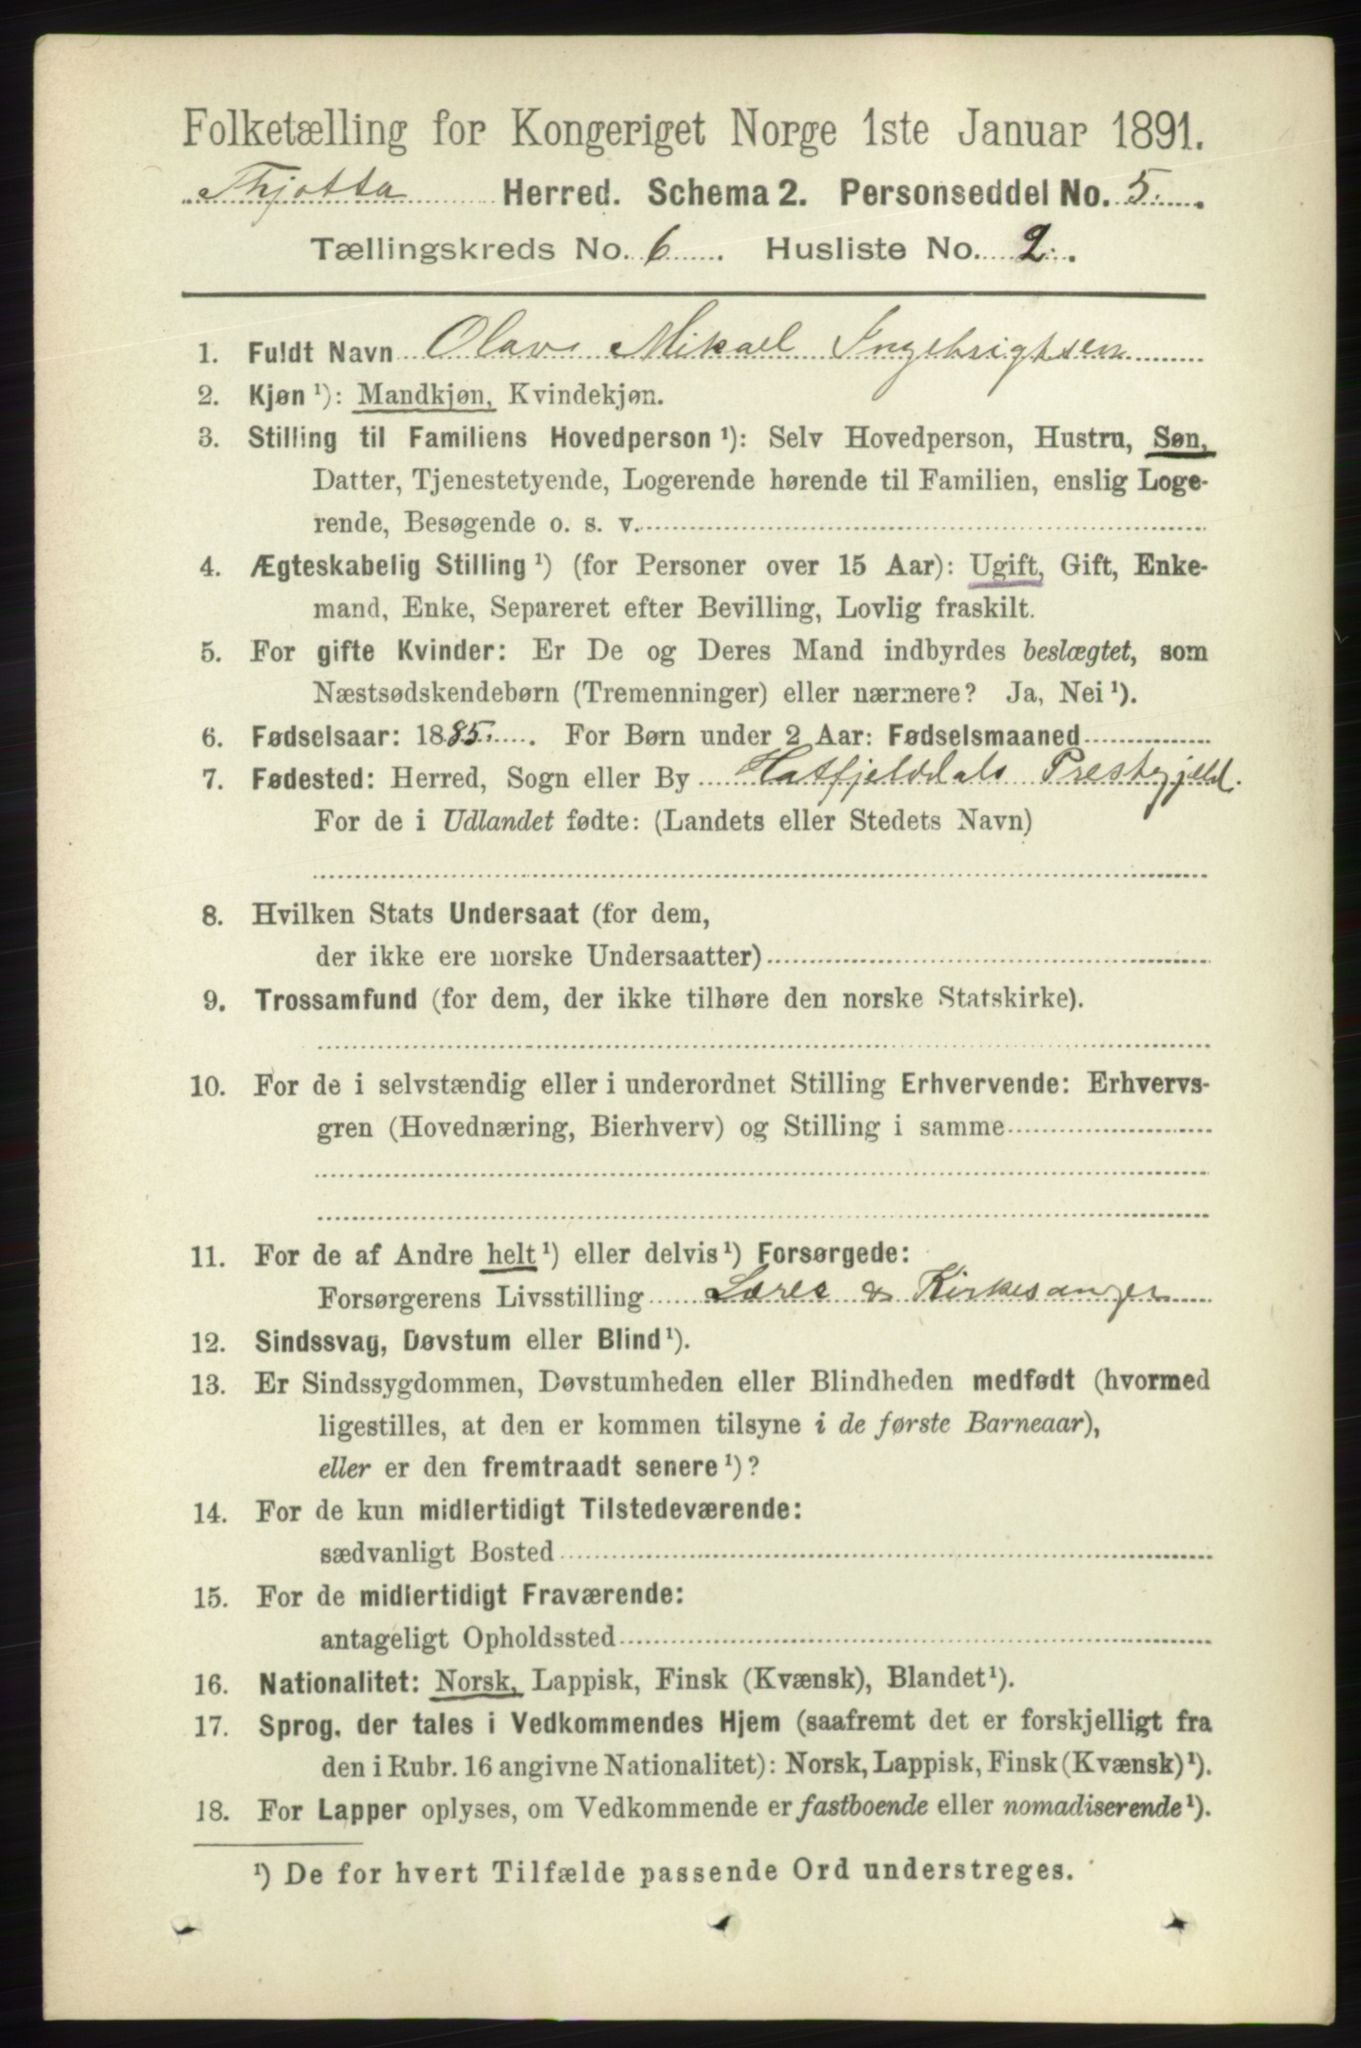 Folketælling for Kongeriget Norge 1ste Januar 1891.
Thjøtta Herred. Schema 2. Personseddel No. 5.
Tællingskreds No. 6. Husliste No. 2.
1. Fuldt Navn Olav Mikael Ingebrigtsen
2. Kjøn ¹): Mandkjøn, Kvindekjøn.
3. Stilling til Familiens Hovedperson ¹): Selv Hovedperson, Hustru, Søn,
Datter, Tjenestetyende, Logerende hørende til Familien, enslig Loge-
rende, Besøgende o. s. v.
4. Ægteskabelig Stilling ¹) (for Personer over 15 Aar): Ugift, Gift, Enke-
mand, Enke, Separeret efter Bevilling, Lovlig fraskilt.
5. For gifte Kvinder: Er De og Deres Mand indbyrdes beslægtet, som
Næstsødskendebørn (Tremenninger) eller nærmere? Ja, Nei ¹).
6. Fødselsaar: 1885. For Børn under 2 Aar: Fødselsmaaned
7. Fødested: Herred, Sogn eller By Hatfjelddals Prestegjeld.
For de i Udlandet fødte: (Landets eller Stedets Navn)
8. Hvilken Stats Undersaat (for dem,
der ikke ere norske Undersaatter)
9. Trossamfund (for dem, der ikke tilhøre den norske Statskirke).
10. For de i selvstændig eller i underordnet Stilling Erhvervende: Erhvervs-
gren (Hovednæring, Bierhverv) og Stilling i samme
11. For de af Andre helt ¹) eller delvis ¹) Forsørgede:
Forsørgerens Livsstilling Lærer & Kirkesanger
12. Sindssvag, Døvstum eller Blind ¹).
13. Er Sindssygdommen, Døvstumheden eller Blindheden medfødt (hvormed
ligestilles, at den er kommen tilsyne i de første Barneaar),
eller er den fremtraadt senere ¹)?
14. For de kun midlertidigt Tilstedeværende:
sædvanligt Bosted
15. For de midlertidigt Fraværende:
antageligt Opholdssted
16. Nationalitet: Norsk, Lappisk, Finsk (Kvænsk), Blandet ¹).
17. Sprog, der tales i Vedkommendes Hjem (saafremt det er forskjelligt fra
den i Rubr. 16 angivne Nationalitet): Norsk, Lappisk, Finsk (Kvænsk) ¹).
18. For Lapper oplyses, om Vedkommende er fastboende eller nomadiserende ¹).
¹) De for hvert Tilfælde passende Ord understreges.